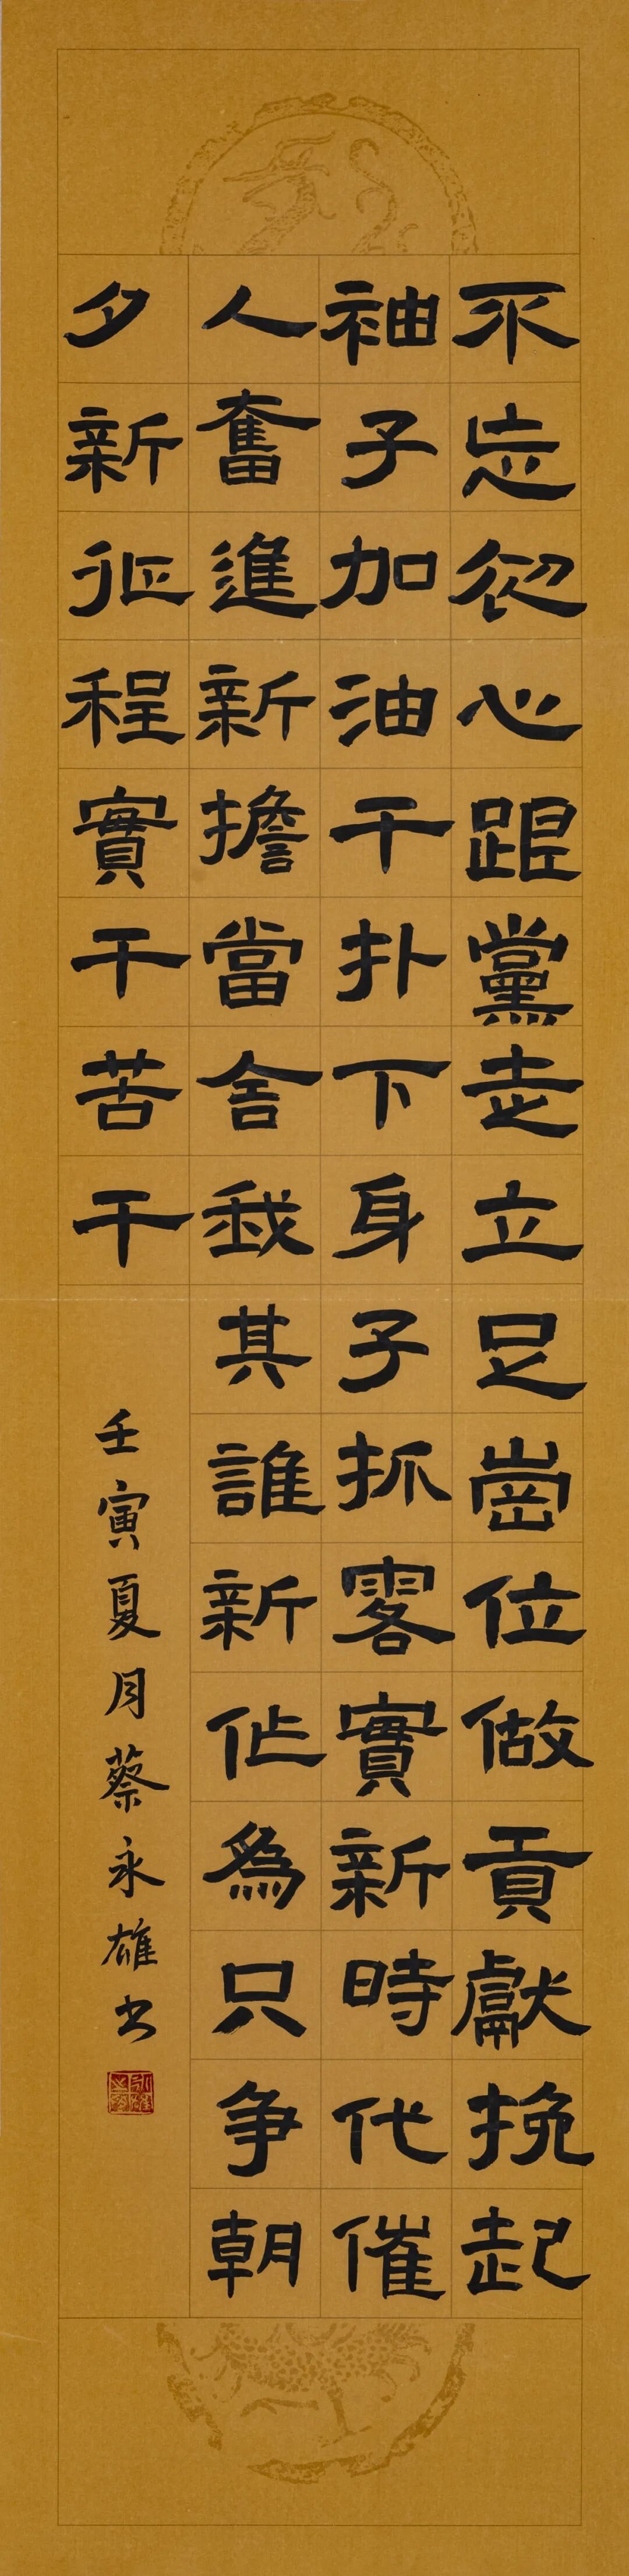 不忘初心跟黨走立足崗位做貢獻挽起
袖子加油干扑下身子抓落實新時代催
人奮進新擔當舍我其誰新作為只争朝
夕新征程實干苦干
壬寅夏月蔡永雄书